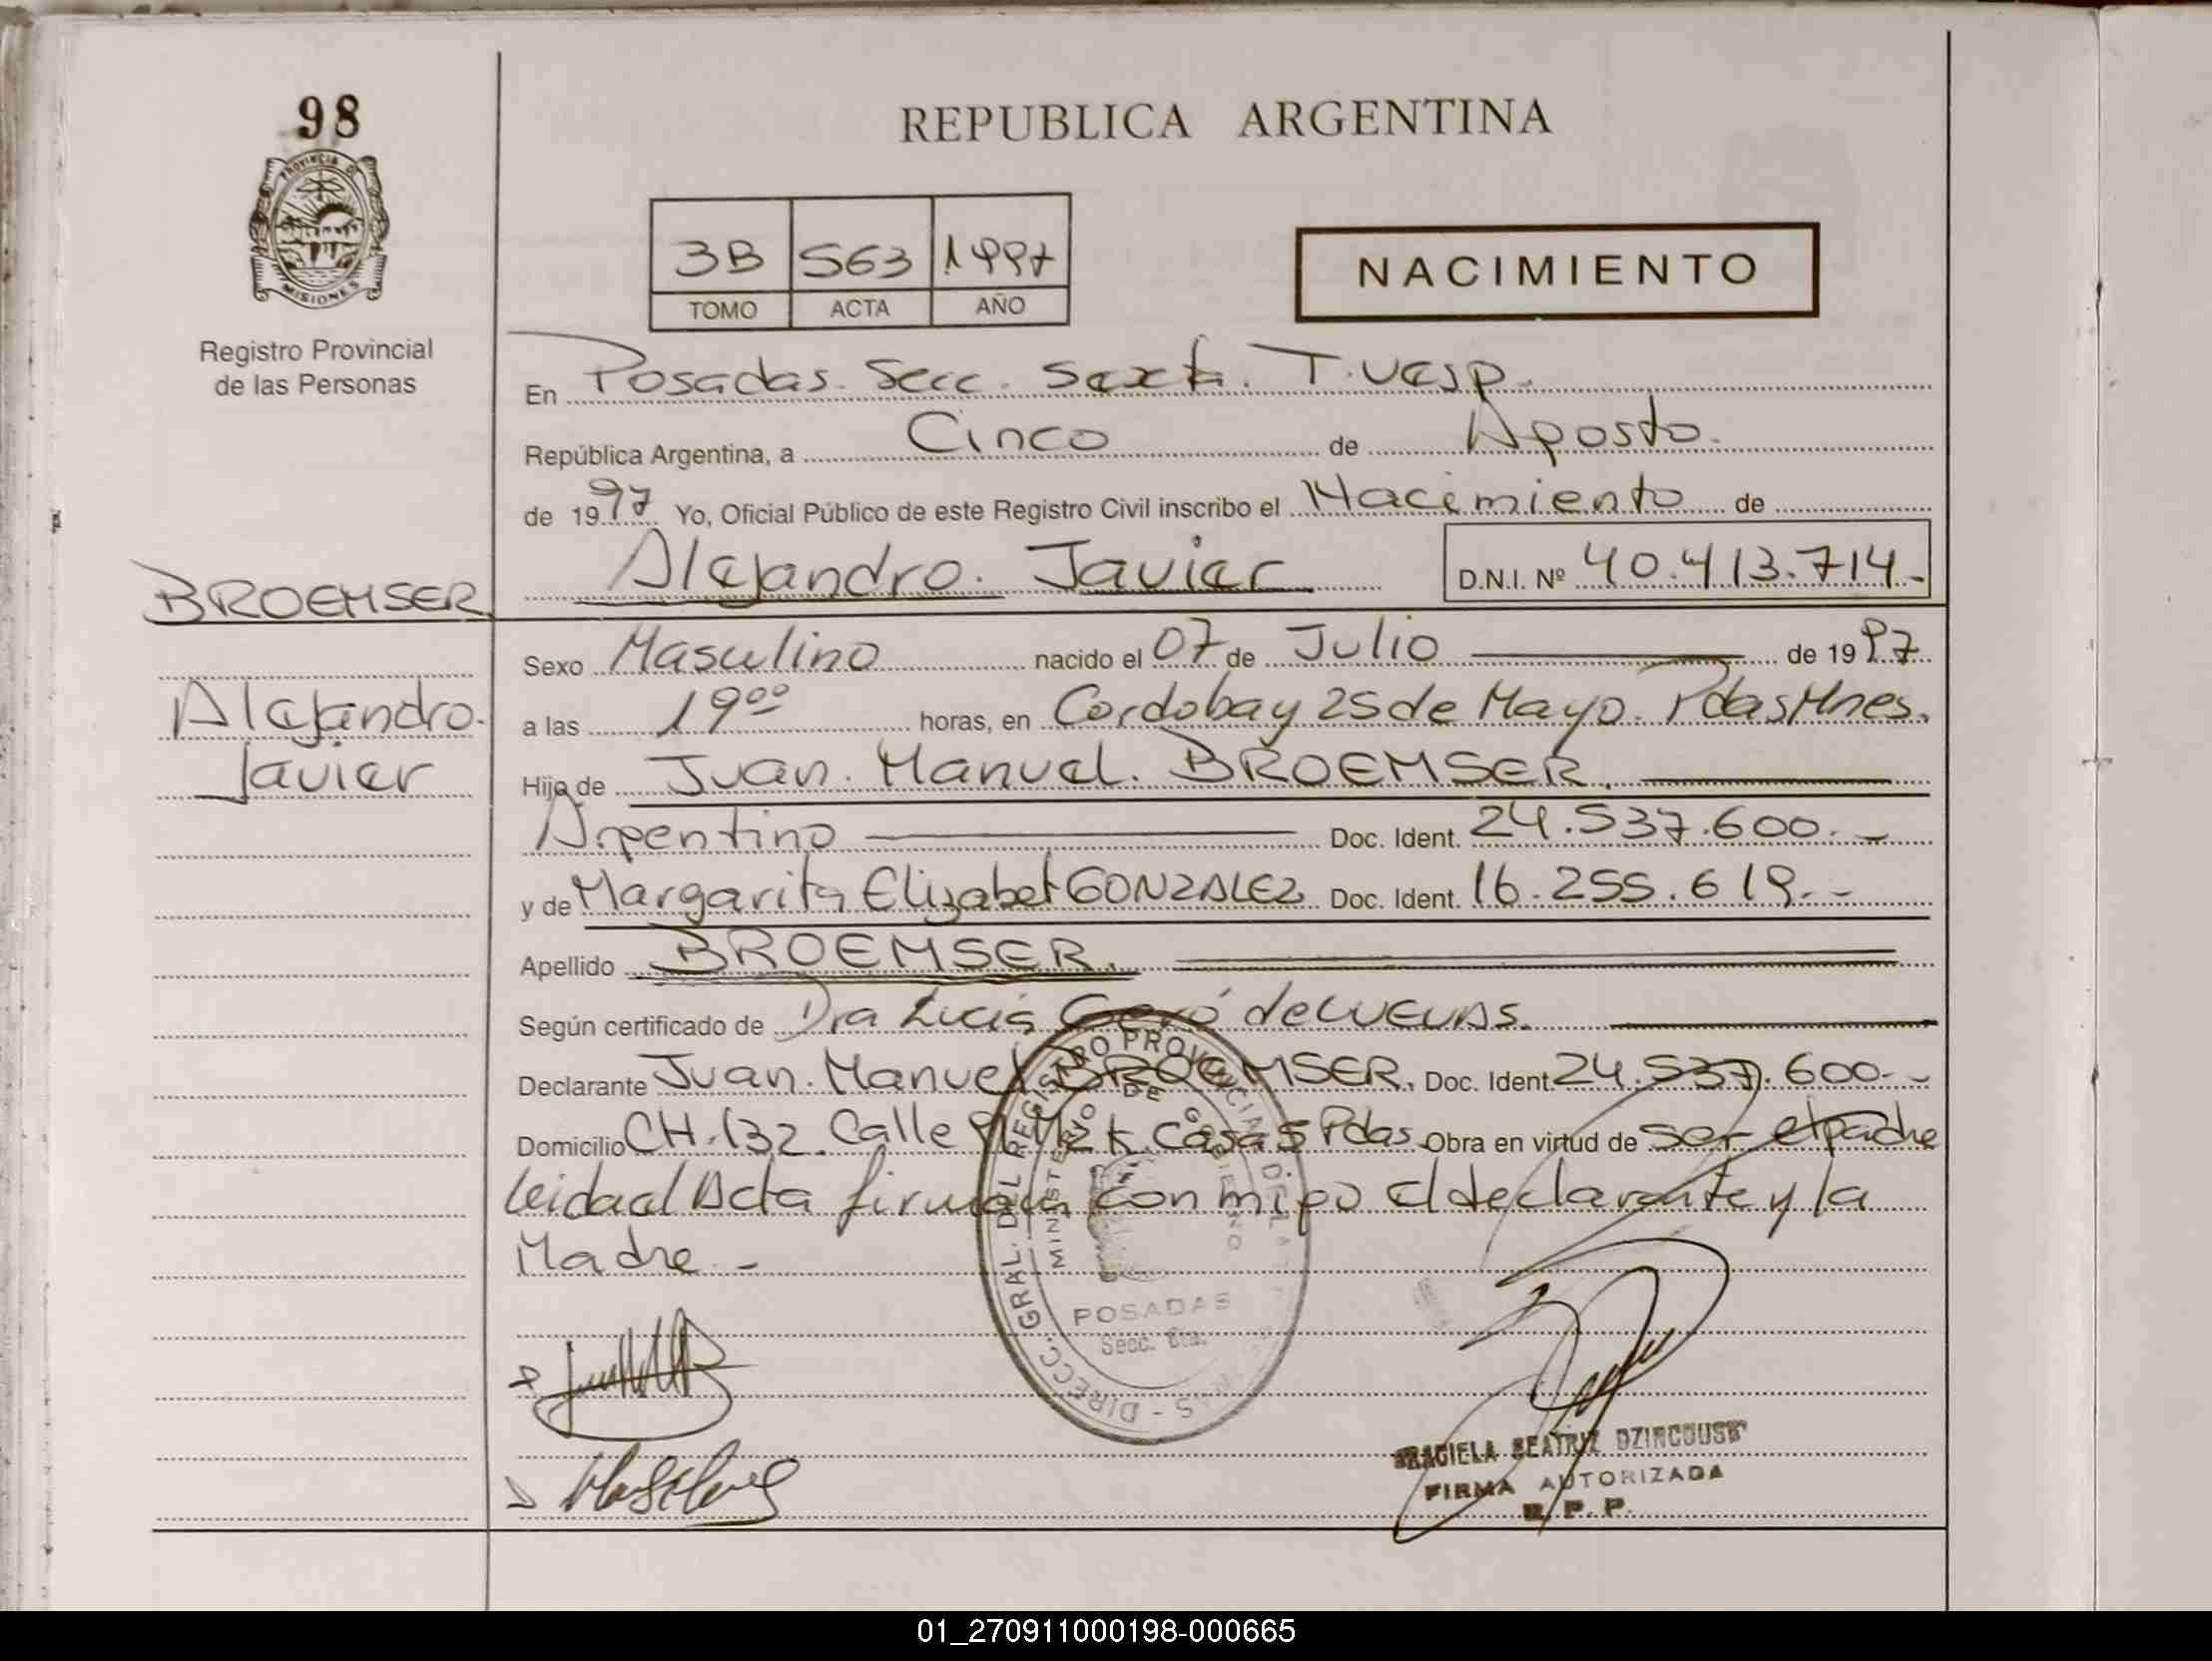 98
REPUBLICA ARGENTINA
PROVINCIA DE
MISIONES
Registro Provincial
de las Personas
3B 563 1997
TOMO ACTA AÑO
NACIMIENTO
En Posadas. Secc. Sexta. T. Vesp.
República Argentina, a Cinco de Agosto.
de 1997 Yo, Oficial Público de este Registro Civil inscribo el Nacimiento de
Alejandro. Javier D.N.I. Nº 40.413.714.-
BROEMSER
Alejandro.
Javier
Sexo Masculino nacido el 07 de Julio de 1997
a las 19⁰⁰ horas, en Cordoba y 25 de Mayo. Pdas Mnes.
Hijo de Juan. Manuel. BROEMSER.
Argentino Doc. Ident. 24.537.600.-
y de Margarita Elizabet GONZALEZ Doc. Ident. 16.255.619.-
Apellido BROEMSER.
Según certificado de Dra Lucia de CUEVAS.
Declarante Juan. Manuel BROEMSER. Doc. Ident. 24.537.600.-
Domicilio CH.132. Calle Casa 5 Pdas. Obra en virtud de ser el padre
leida el Acta firman con migo el declarante y la
Madre.-
DIRECC. GRAL. DEL REGISTRO PROVINCIAL DE LAS PERSONAS
MINISTERIO DE GOBIERNO
POSADAS
Secc. 6ta.
GRACIELA BEATRIZ
FIRMA AUTORIZADA
R. P. P.
01_270911000198-000665